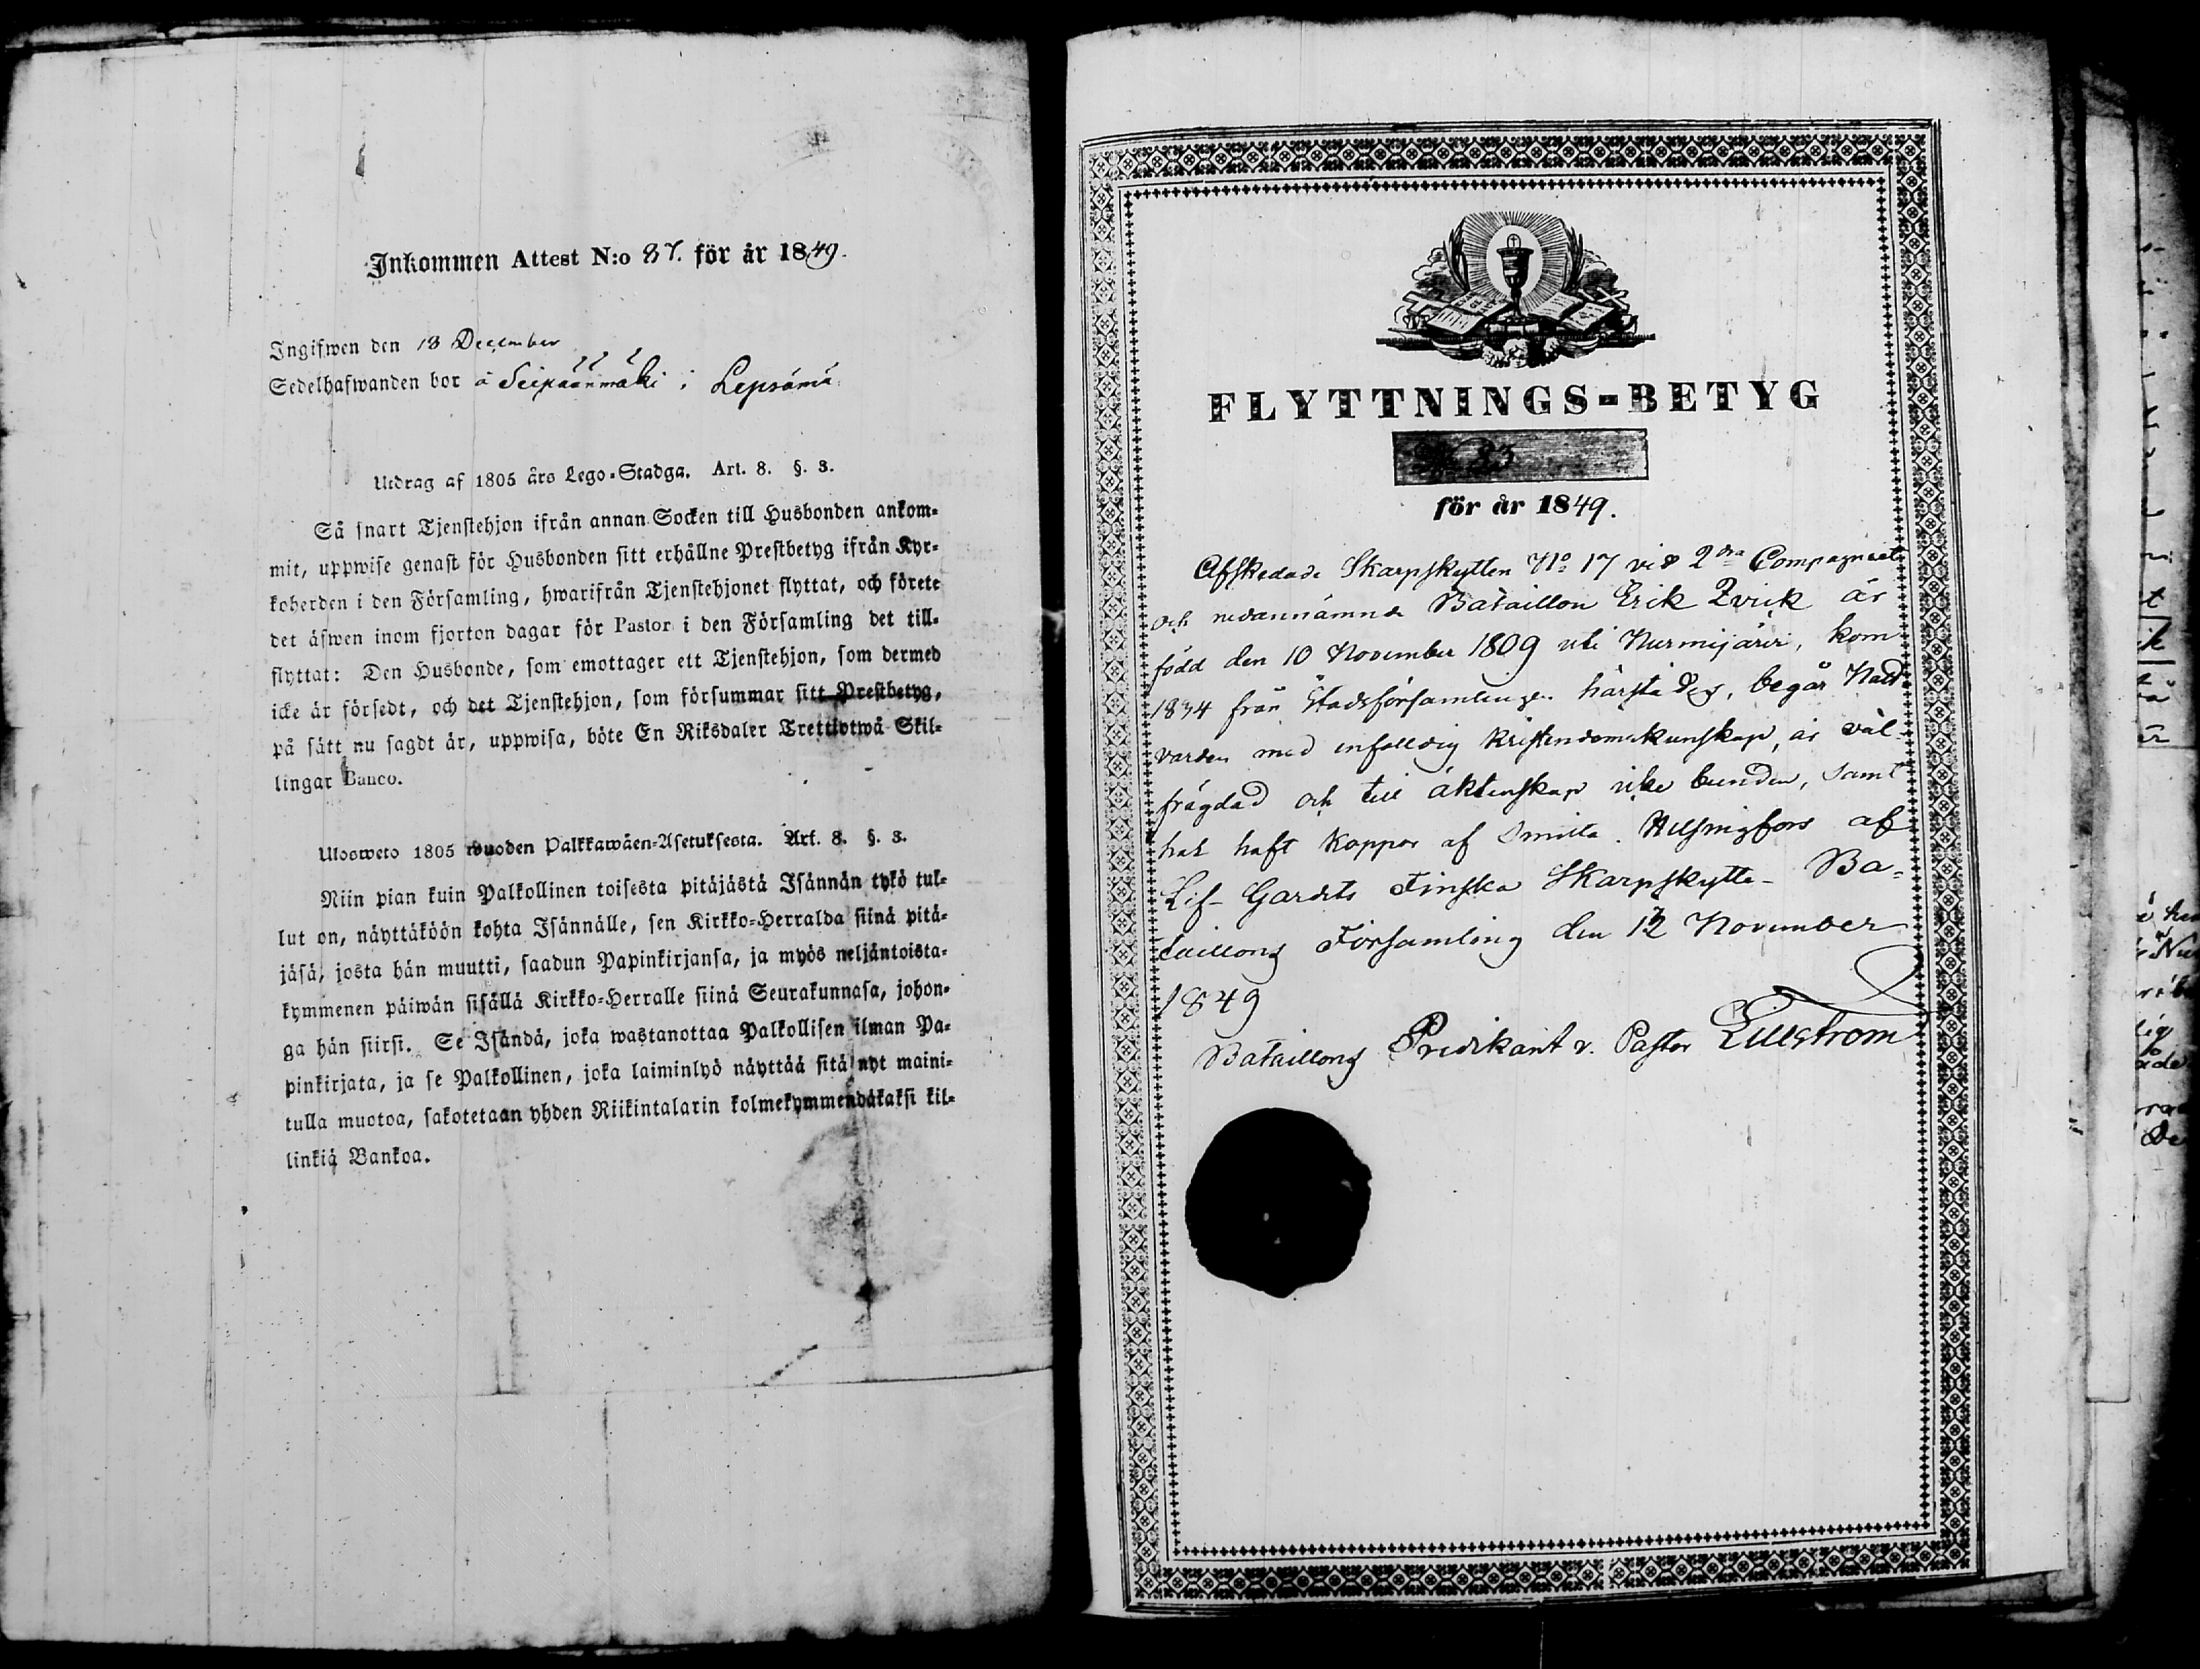 Inkommen Attest N:o 87. för år 1849.
Ingifwen den 18 December
Sedelhafwanden bor å Seipäänmäki i Lepsämä
Utdrag af 1805 års Lego-Stadga. Art. 8. §. 3.
Så snart Tjenstehjon ifrån annan Socken till Husbonden ankom-
mit, uppwise genast för Husbonden sitt erhällne Prestbetyg ifrån Kyr-
koherden i den Församling, hwarifrån Tjenstehjonet flyttat, och förete
det äfwen inom fjorton dagar för Pastor i den Församling det till-
flyttat: Den Husbonde, som emottager ett Tjenstehjon, som dermed
icke är försedt, och det Tjenstehjon, som försummar sitt Prestbetyg,
på sätt nu sagdt är, uppwisa, böte En Riksdaler Trettiotwå Skil-
lingar Banco.
Ulosweto 1805 wuoden Palkkawäen-Asetuksesta. Art. 8. §. 3.
Niin pian kuin Palkollinen toisesta pitäjästä Isännän tykö tul-
lut on, näyttäköön kohta Isännälle, sen Kirkko-Herralda siinä pitä-
jäsä, josta hän muutti, saadun Papinkirjansa, ja myös neljäntoista-
kymmenen päiwän sisällä Kirkko-Herralle siinä Seurakunnasa, johon-
ga hän siirsi. Se Isändä, joka wastanottaa Palkollisen ilman Pa-
pinkirjata, ja se Palkollinen, joka laiminlyö näyttää sitä nyt maini-
tulla muotoa, sakotetaan yhden Riikintalarin kolmekymmendäkaksi kil-
linkiä Bankoa.
FLYTTNINGS-BETYG
No 83
för år 1849.
Afskedade Skarpskytten No 17 vid 2dra Compagniet
och nedannämnde Bataillon Erik Qvick är
född den 10 November 1809 uti Nurmijärvi, kom
1834 från Stadsförsamlingen härstädes, begår Natt-
varden med enfaldig kristendomskunskap, är väl-
frägdad och till äktenskap icke bunden, samt
har haft koppor af smitta. Helsingfors af
Lif-Gardets Finska Skarpskytte-Ba-
taillons Församling den 12 November
1849
Bataillons Predikant v. Pastor Lillström